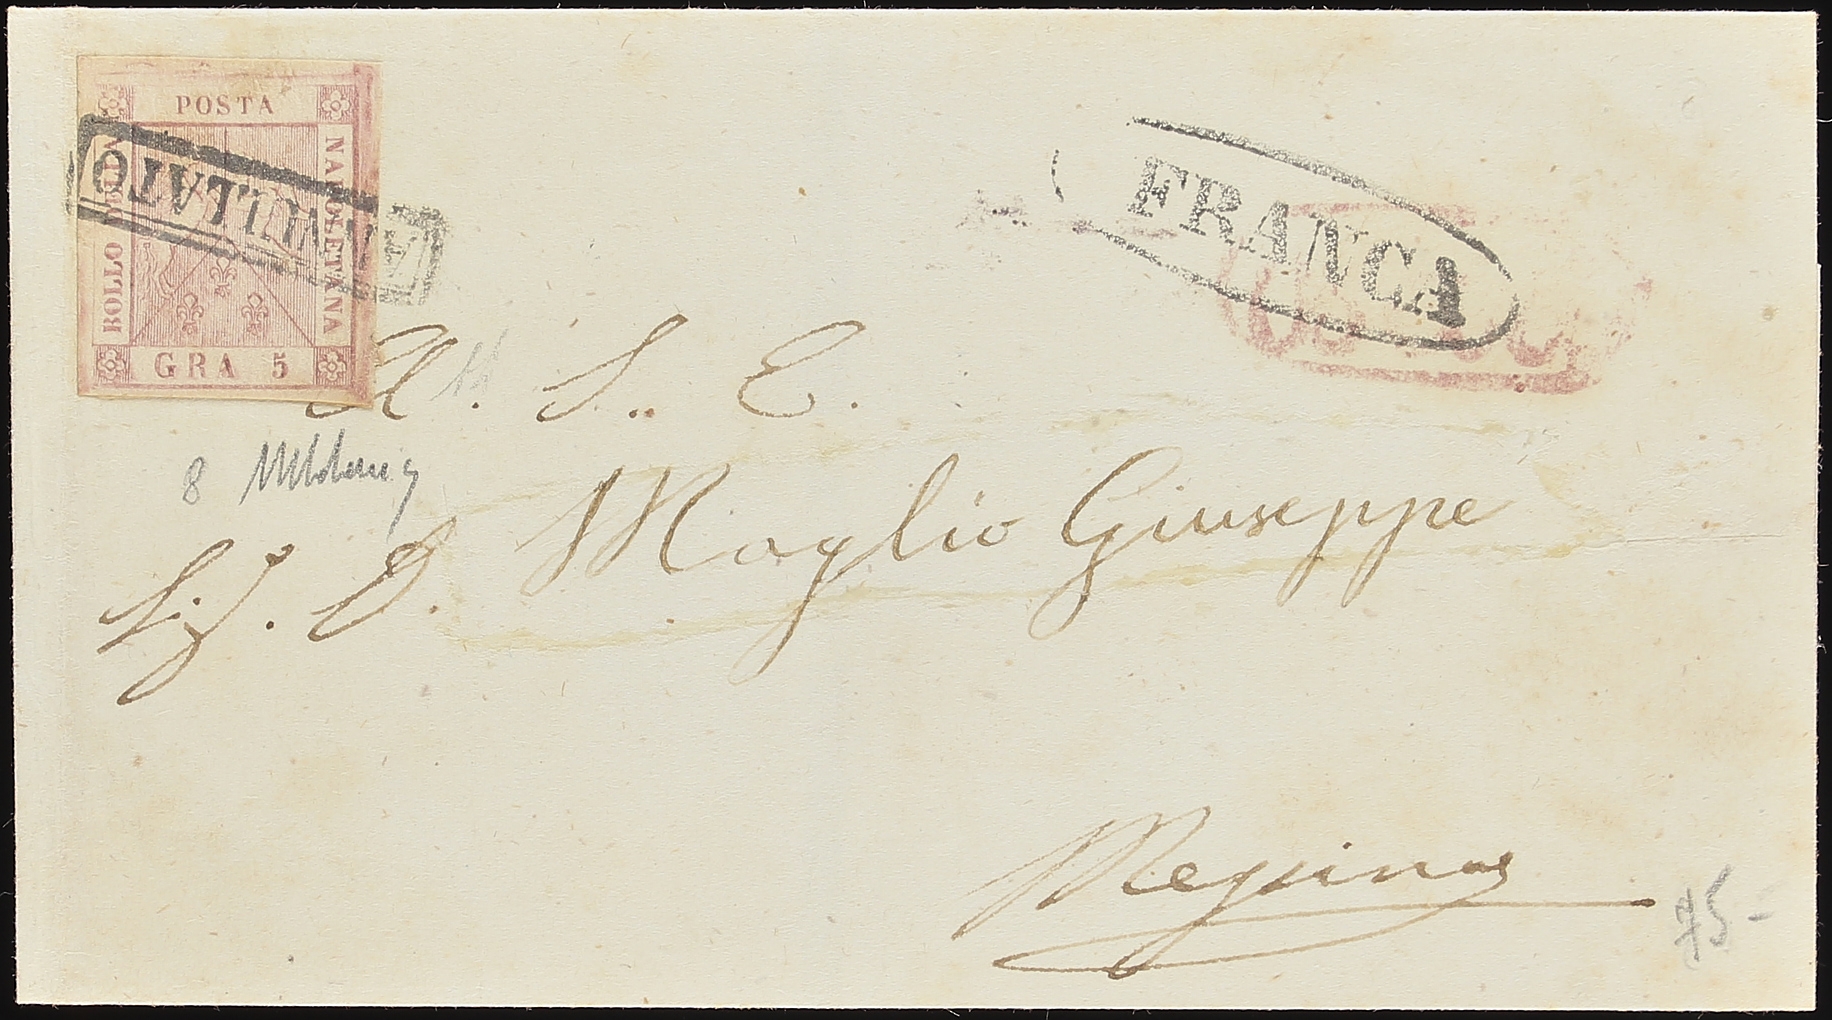 POSTA
NAPOLETANA
BOLLO DELLA
GRA 5
ANNULLATO
FRANCA
A S. E.
8
Sig. D. Maglio Giuseppe
Messina
75-